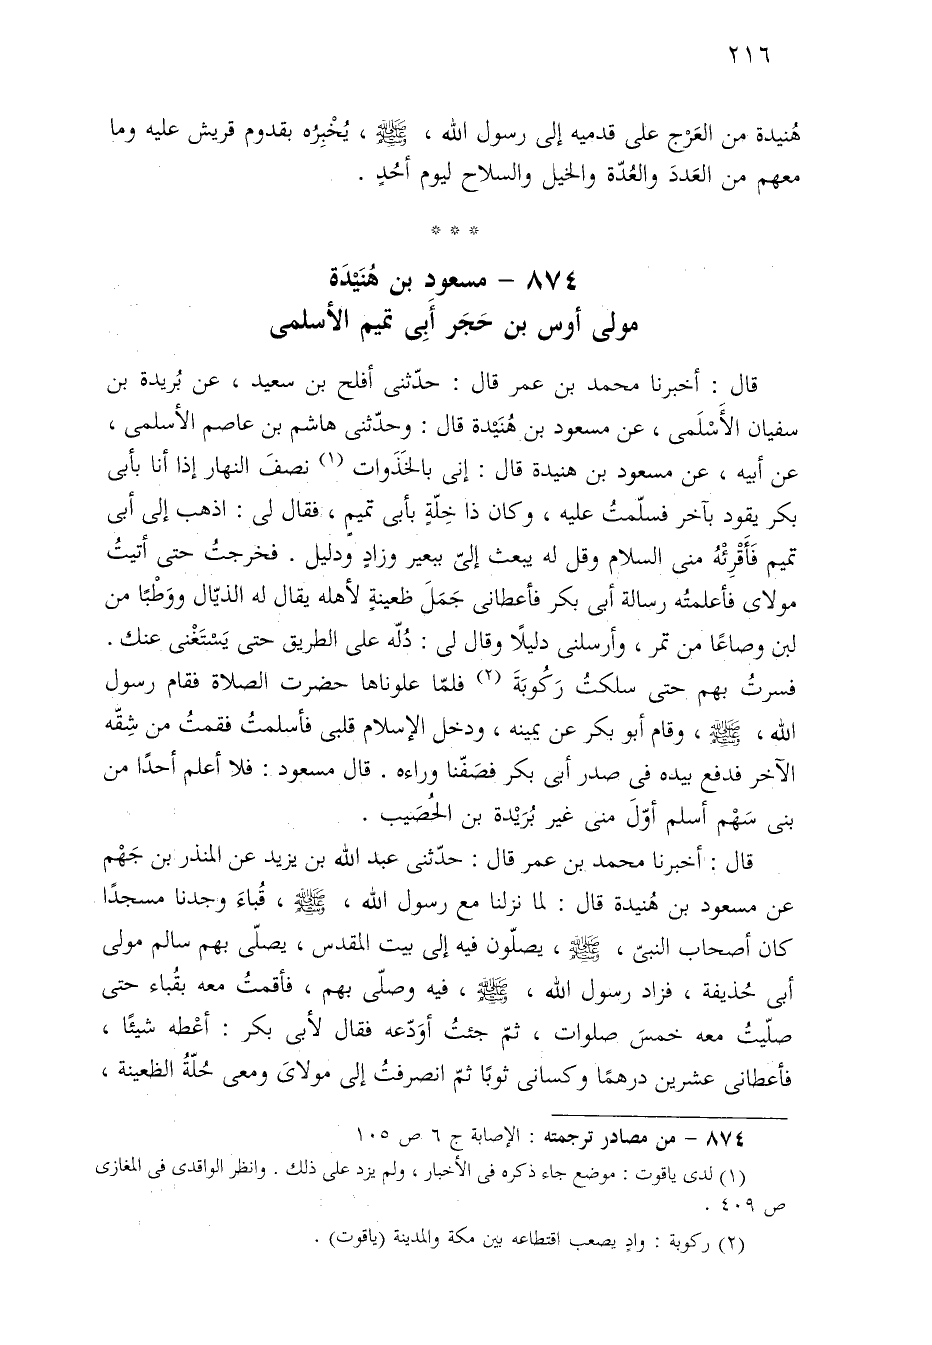 ٢١٦
هُنيدة من العَرْج على قدميه إلى رسول الله ، ﷺ ، يُخْبِرُه بقدوم قريش عليه وما
معهم من العَددَ والعُدّة والخيل والسلاح ليوم أُحُدٍ .
* * *
٨٧٤ – مسعود بن هُنَيْدَة
مولى أوس بن حَجَر أَبِى تميم الأسلمى
قال : أخبرنا محمد بن عمر قال : حدّثنى أفلح بن سعيد ، عن بُريدة بن
سفيان الأَسْلَمى ، عن مسعود بن هُنَيْدة قال : وحدّثنى هاشم بن عاصم الأسلمى ،
عن أبيه ، عن مسعود بن هنيدة قال : إنى بالخَذَوات (١) نصفَ النهار إذا أنا بأبى
بكر يقود بآخر فسلّمتُ عليه ، وكان ذا خِلّةٍ بأبى تميمٍ ، فقال لى : اذهب إلى أبى
تميم فَأَقْرِئْهُ منى السلام وقل له يبعث إلىّ ببعير وزادٍ ودليل . فخرجتُ حتى أتيتُ
مولاى فأعلمتُه رسالة أبى بكر فأعطانى جَمَلَ ظعينةٍ لأهله يقال له الذيّال ووَطْبًا من
لبن وصاعًا من تمر ، وأرسلنى دليلًا وقال لى : دُلّه على الطريق حتى يَسْتَغْنى عنك .
فسرتُ بهم حتى سلكتُ رَكُوبَةَ (٢) فلمّا علوناها حضرت الصلاة فقام رسول
الله ، ﷺ ، وقام أبو بكر عن يمينه ، ودخل الإسلام قلبى فأسلمتُ فقمتُ من شِقّه
الآخر فدفع بيده فى صدر أبى بكر فصَفّنا وراءه . قال مسعود : فلا أعلم أحدًا من
بنى سَهْم أسلم أوّلَ منى غير بُرَيْدة بن الحُصَيب .
قال : أخبرنا محمد بن عمر قال : حدّثنى عبد الله بن يزيد عن المنذر بن جَهْم
عن مسعود بن هُنيدة قال : لما نزلنا مع رسول الله ، ﷺ ، قُباءَ وجدنا مسجدًا
كان أصحاب النبىّ ، ﷺ ، يصلّون فيه إلى بيت المقدس ، يصلّى بهم سالم مولى
أبى حُذيفة ، فزاد رسول الله ، ﷺ ، فيه وصلّى بهم ، فأقمتُ معه بقُباء حتى
صلّيتُ معه خمسَ صلوات ، ثمّ جئتُ أوَدّعه فقال لأبى بكر : أعْطه شيئًا ،
فأعطانى عشرين درهمًا وكسانى ثوبًا ثمّ انصرفتُ إلى مولاىَ ومعى حُلّةُ الظعينة ،
٨٧٤ – من مصادر ترجمته : الإصابة ج ٦ ص ١٠٥
(١) لدى ياقوت : موضع جاء ذكره فى الأخبار ، ولم يزد على ذلك . وانظر الواقدى فى المغازى
ص ٤٠٩ .
(٢) ركوبة : وادٍ يصعب اقتطاعه بين مكة والمدينة (ياقوت) .